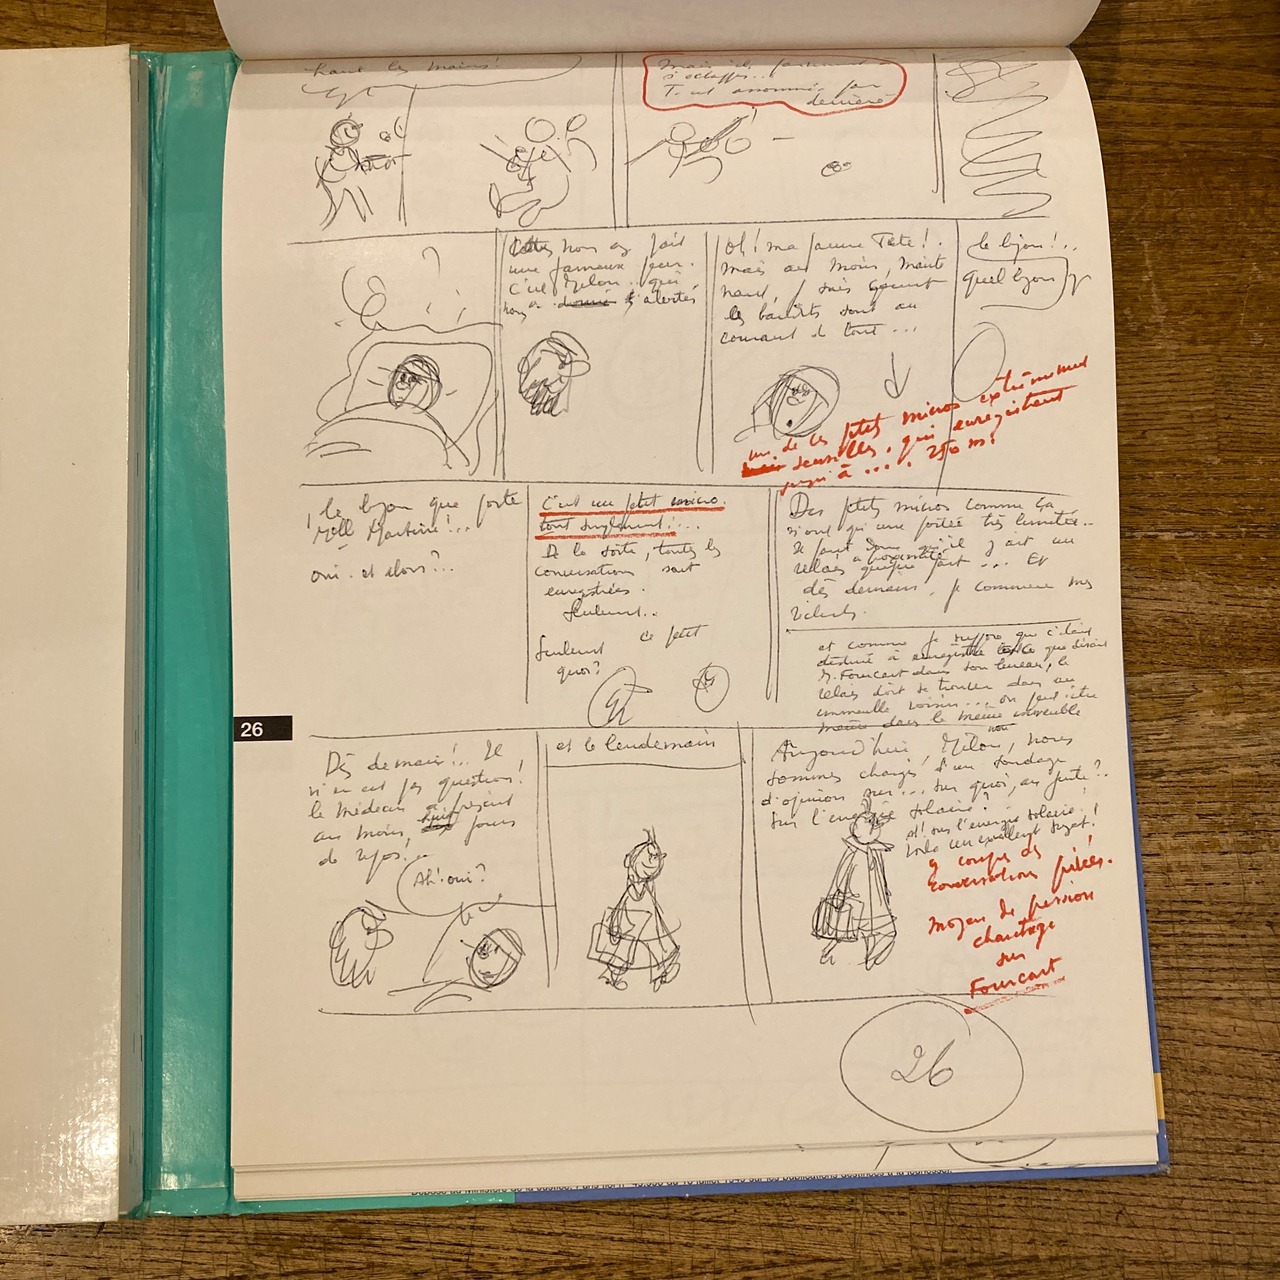 haut les mains!
Mais ils
T. est assommé par
derrière
nous as fait
une fameuse peur.
C'est Milou.. qui
nous a donné l'alerte
Oh! ma pauvre Tête!.
Mais au moins, mainte
nant, je sais
les bandits sont au
courant de tout...
le bijou!..
quel bijou?
un de ces petits micros extrêmement
sensibles, qui enregistrent
jusqu'à .... 250 m!
le bijou que porte
Mlle Martine!...
oui. et alors?...
C'est un petit micro.
tout simplement!...
De la sorte, toutes les
conversations sont
enregistrées.
Seulement..
Seulement
ce petit
quoi?
Des petits micros comme ça
n'ont qu'une portée très limitée..
Il faut donc qu'il y ait un
relais à proximité quelque part ... Et
dès demain, je commence mes
et comme je suppose que c'était
destiné à enregistrer tout ce que disait
M. Fourcart dans son bureau, le
relais doit se trouver dans un
immeuble voisin... ou peut-être
même dans le même immeuble
non
Dès demain!.. Il
n'en est pas question!
le médecin a prescrit
au moins, huit jours
de repos!..
Ah! oui?
et le lendemain
Aujourd'hui, Milou, nous
sommes chargés d'un sondage
d'opinion sur... sur quoi, au juste?.
sur l'énergie solaire?
ah! sur l'énergie solaire!
voilà un excellent sujet!
y compris des
conversations privées.
moyen de pression
chantage
sur
Fourcart
26
26